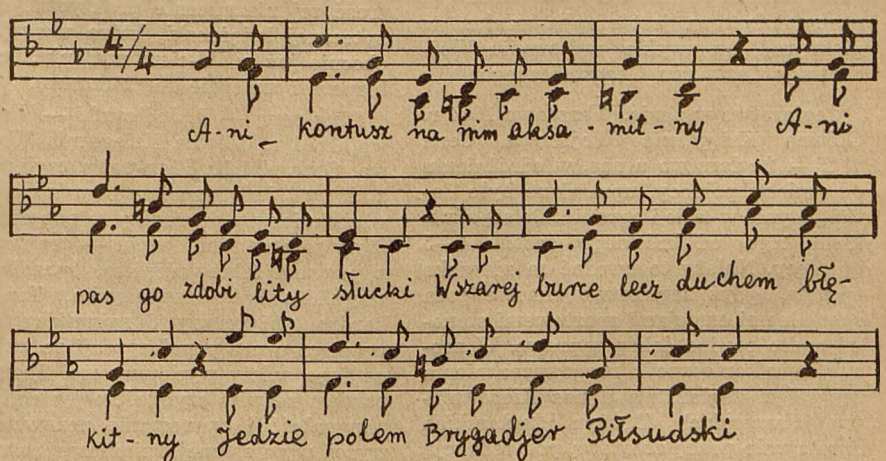 4/4
A-ni_ kontusz na nim aksa-mit-ny A-ni
pas go zdobi lity słucki Wszarej burce lecz duchem błę-
kit-ny Jedzie polem Brygadjer Piłsudski